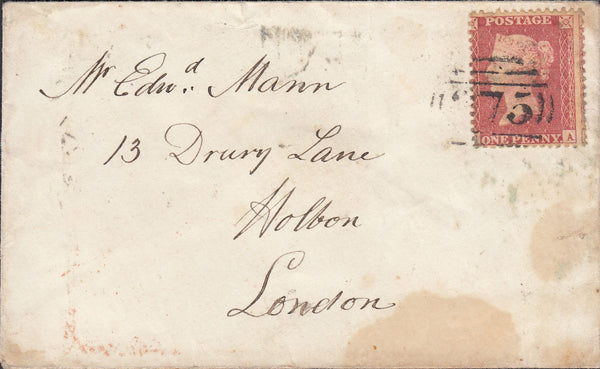 POSTAGE
75
ONE PENNY A
Mr Edwd. Mann
13 Drury Lane
Holbon
London